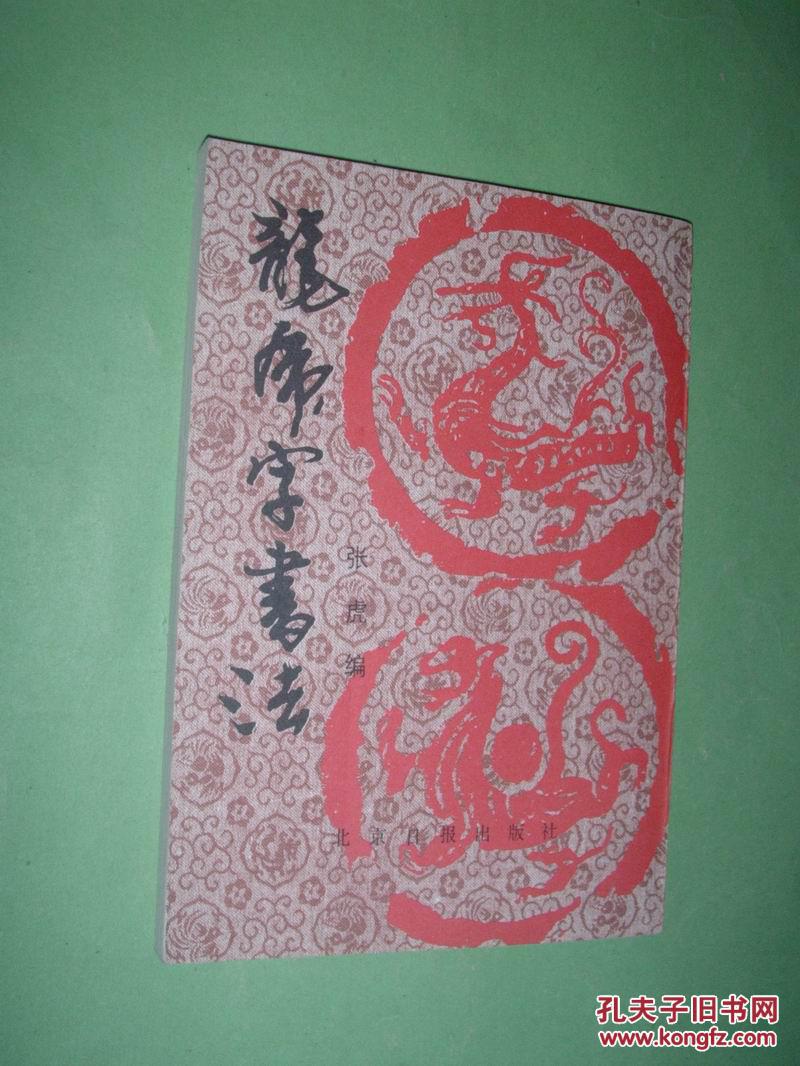 龍虎字書法
张虎编
北京日报出版社
孔夫子旧书网
www.kongfz.com